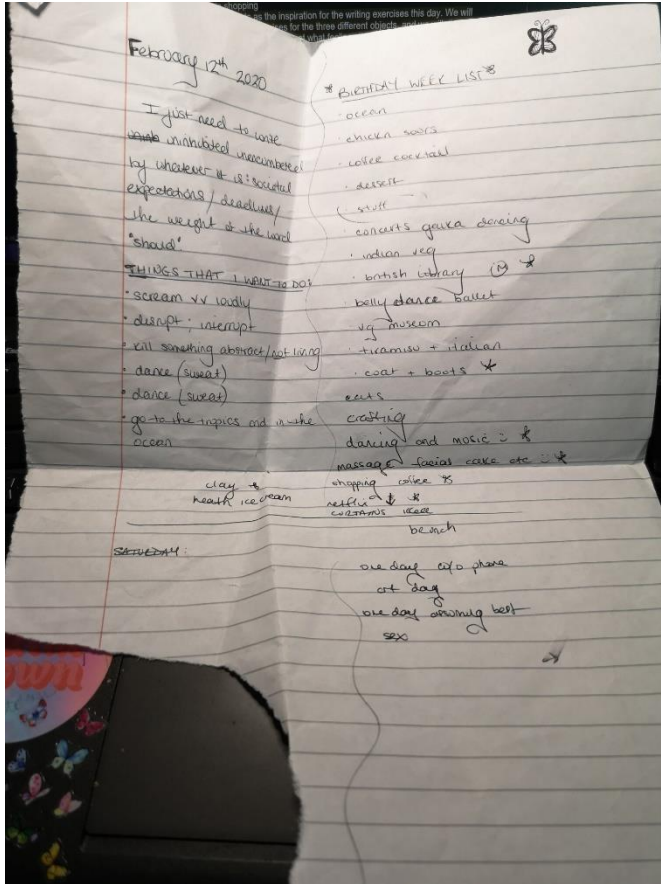 shopping
as the inspiration for the writing exercises this day. We will
es for the three different objects, and
February 12th 2020
I just need to write
uninhibited unencumbered
by whatever it is: societal
expectations / deadlines /
the weight of the word
"should"
THINGS THAT I WANT TO DO:
· scream vv loudly
· disrupt ; interrupt
· kill something abstract/not living
· dance (sweat)
· dance (sweat)
· go to the tropics and in the
ocean
clay *
heath icecream
SATURDAY:
* BIRTHDAY WEEK LIST *
· ocean
· chickn soors
· coffee cocktail
· dessert
· stuff
· concerts gauka dancing
· indian veg
· british library (M) *
· belly dance ballet
vg museum
· tiramisu + italian
· coat + boots *
eats
crafting
dancing and music : *
massage facial cake etc : *
shopping coffee *
netflix ↓ *
CURTAINS
brunch
one day w/o phone
art day
one day assuming best
sex
own